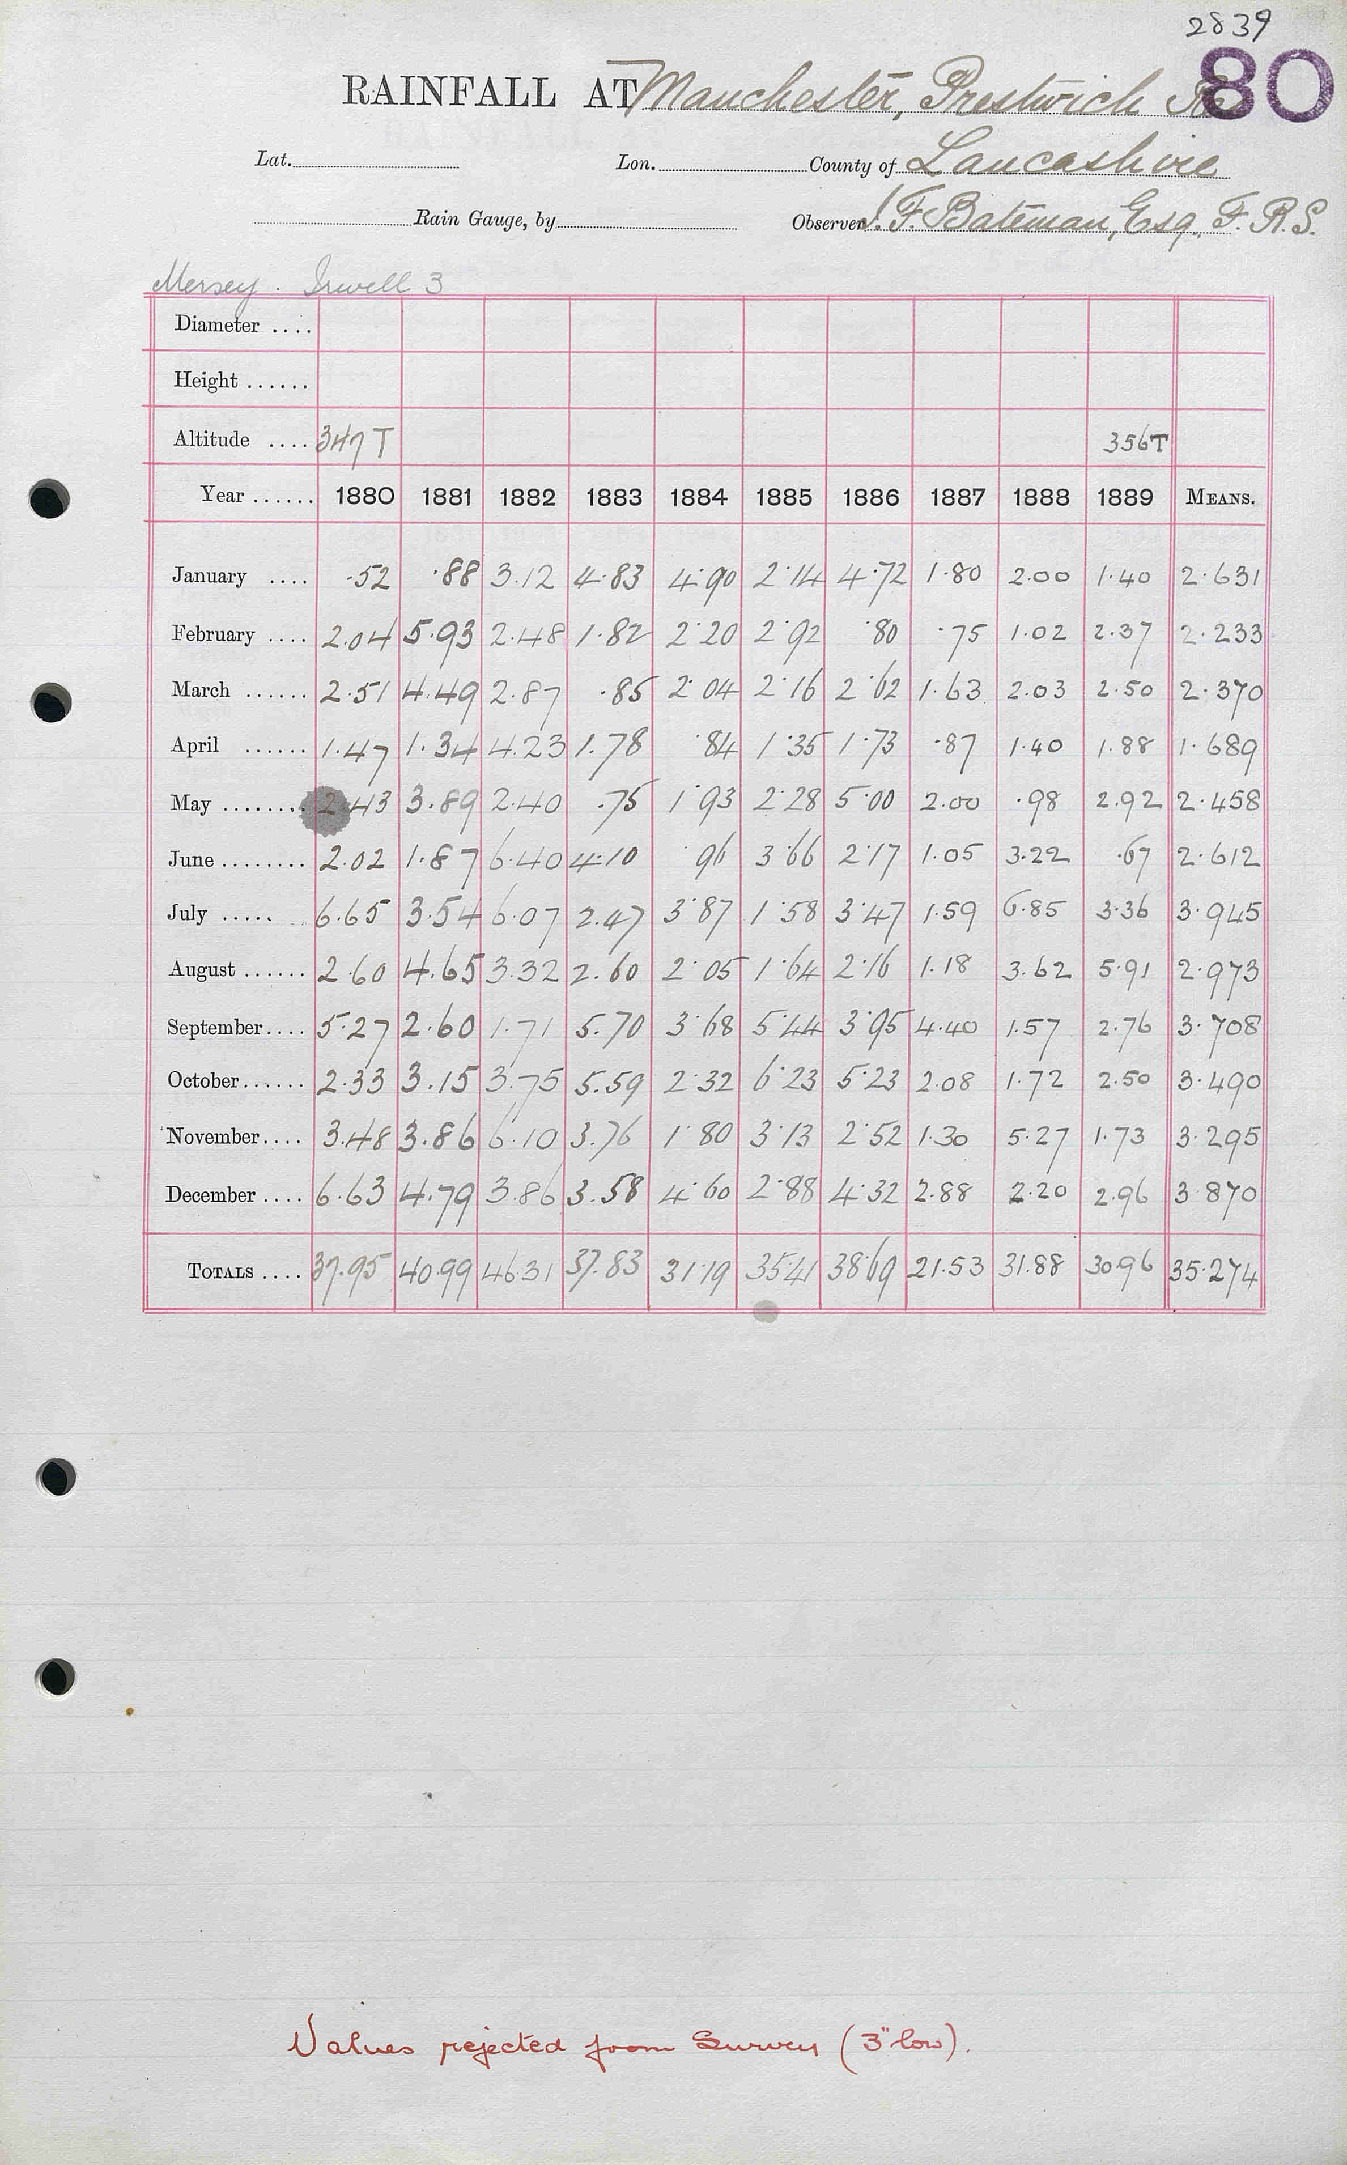 2839
80
RAINFALL AT Manchester, Prestwich
Lat. Lon. County of Lancashire
Rain Gauge, by Observer J. F. Bateman, Esq., F.R.S.
Mersey. Irwell 3
Diameter ....
Height ......
Altitude .... 347 T 356T
Year ...... 1880 1881 1882 1883 1884 1885 1886 1887 1888 1889 MEANS.
January .... .52 .88 3.12 4.83 4.90 2.14 4.72 1.80 2.00 1.40 2.631
February .... 2.04 5.93 2.48 1.82 2.20 2.92 .80 .75 1.02 2.37 2.233
March ...... 2.51 4.49 2.87 .85 2.04 2.16 2.62 1.63 2.03 2.50 2.370
April ...... 1.47 1.34 4.23 1.78 .84 1.35 1.73 .87 1.40 1.88 1.689
May ........ 2.43 3.89 2.40 .75 1.93 2.28 5.00 2.00 .98 2.92 2.458
June ........ 2.02 1.87 6.40 4.10 .96 3.66 2.17 1.05 3.22 .67 2.612
July ..... 6.65 3.54 6.07 2.47 3.87 1.58 3.47 1.59 6.85 3.36 3.945
August ...... 2.60 4.65 3.32 2.60 2.05 1.64 2.16 1.18 3.62 5.91 2.973
September.... 5.27 2.60 1.71 5.70 3.68 5.44 3.95 4.40 1.57 2.76 3.708
October...... 2.33 3.15 3.75 5.59 2.32 6.23 5.23 2.08 1.72 2.50 3.490
November.... 3.48 3.86 6.10 3.76 1.80 3.13 2.52 1.30 5.27 1.73 3.295
December .... 6.63 4.79 3.86 3.58 4.60 2.88 4.32 2.88 2.20 2.96 3.870
TOTALS .... 37.95 40.99 46.31 37.83 31.19 35.41 38.69 21.53 31.88 30.96 35.274
Values rejected from Survey (3" low).